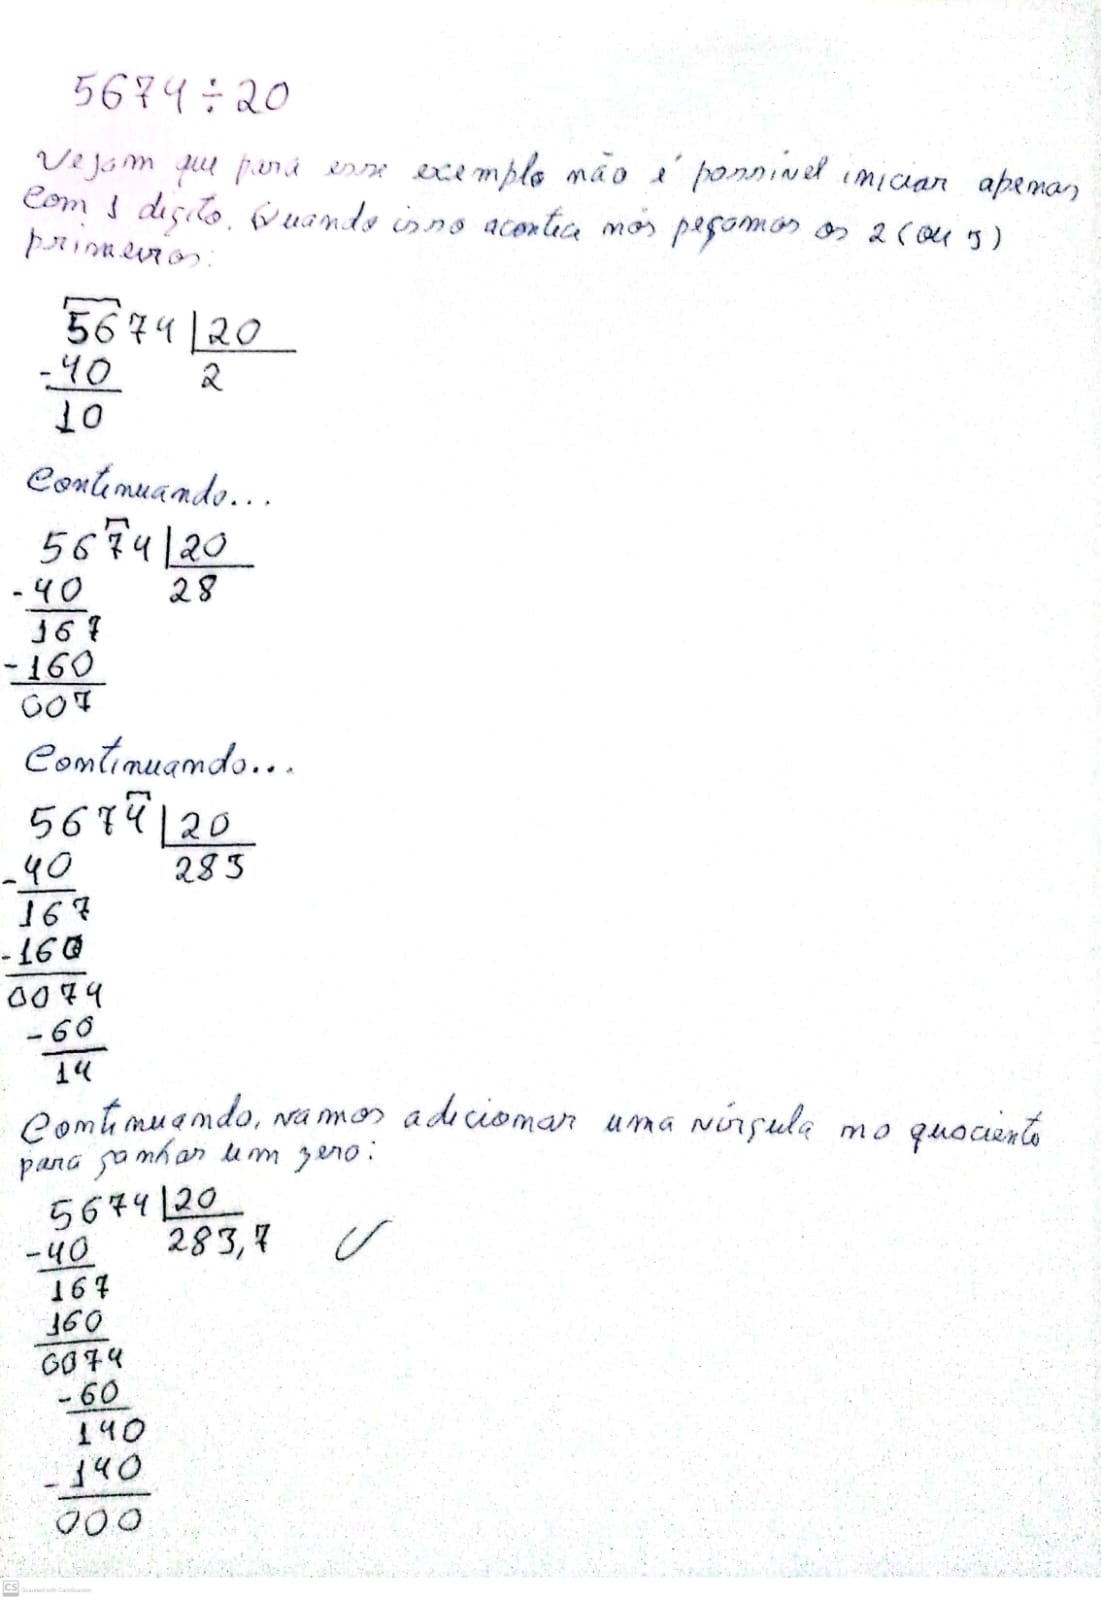 5674÷20
Vejam que para esse exemplo não é possível iniciar apenas
com 1 dígito. Quando isso acontece nós pegamos os 2 (ou 3)
primeiros:
5674 | 20
-40 2
10
Continuando...
5674 | 20
-40 28
167
-160
007
Continuando...
5674 | 20
-40 283
167
-160
0074
-60
14
Continuando, vamos adicionar uma vírgula no quociente
para ganhar um zero:
5674 | 20
-40 283,7
167
160
0074
-60
140
-140
000
CS Scanned with CamScanner